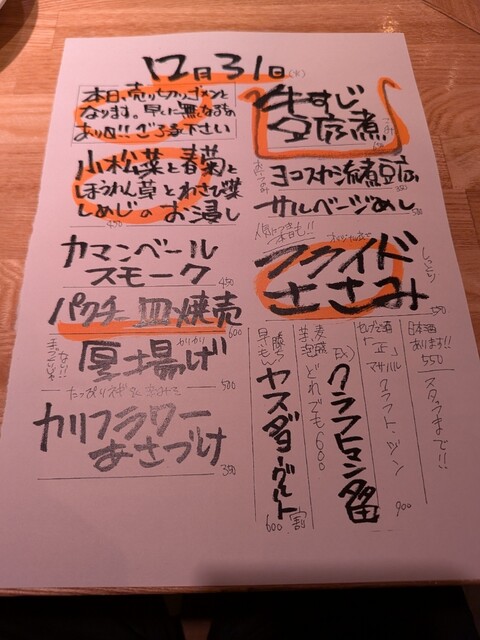 12月31日(火)
本日、売り切りゴメンと
なります。早いに無くなるもの
あり〼!! ご了承下さい
小松菜と春菊と
ほうれん草とわさび菜
しめじのお浸し
450
カマンベール
スモーク
450
パクチー皿焼売
600
厚揚げ
カリカリ
500
たっぷりネギ
カリフラワー
あさづけ
350
牛すじ
豆腐煮
ヨコスカ流煮豆腐
サルベージめし
500
人気
フライド
ささみ
しっとり
550
日本酒
あります!!
550
スタッフまで!!
「正」
クラフト・ジン
900
クラフトマン多田
どれでも600
早い
ヤスダヨーグルト
割
600